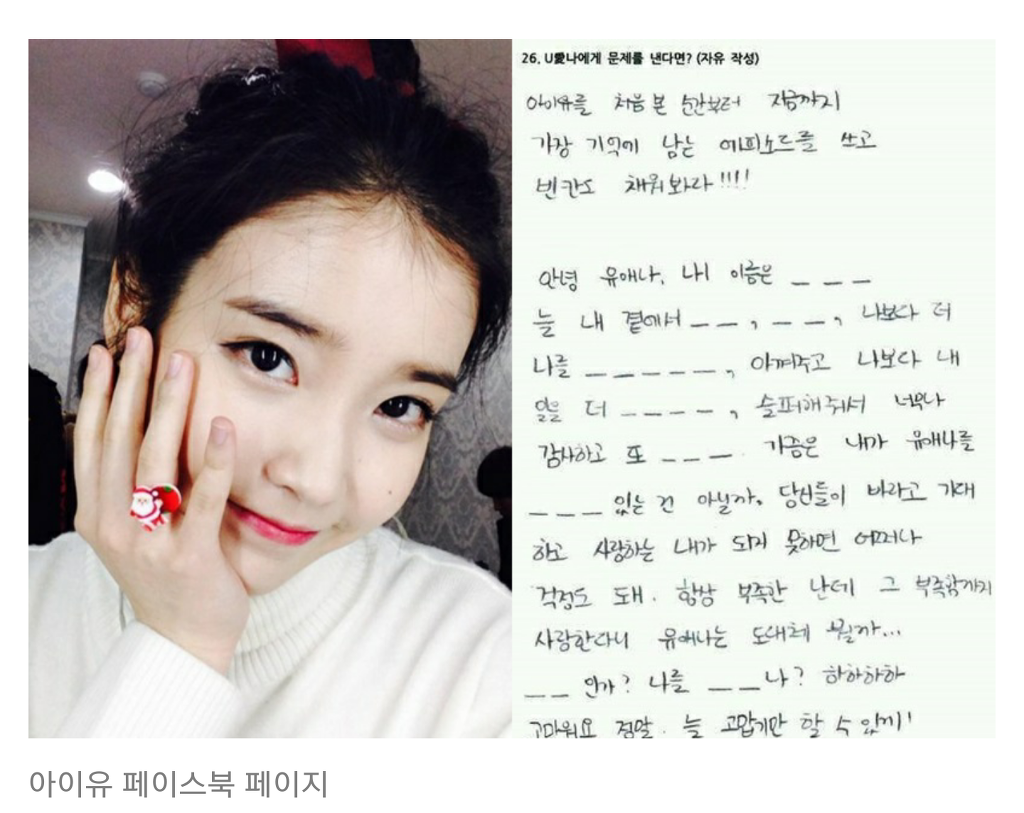 26. U愛나에게 문제를 낸다면? (자유 작성)
아이유를 처음 본 순간부터 지금까지
가장 기억에 남는 에피소드를 쓰고
빈칸도 채워봐라!!!!
안녕 유애나, 내 이름은 _ _ _
늘 내 곁에서 _ _, _ _, 나보다 더
나를 _ _ _ _ _, 아껴주고 나보다 내
일을 더 _ _ _ _, 슬퍼해줘서 너무나
감사하고 또 _ _ _. 가끔은 내가 유애나를
_ _ _ 있는 건 아닐까, 당신들이 바라고 기대
하고 사랑하는 내가 되지 못하면 어쩌나
걱정도 돼. 항상 부족한 난데 그 부족함까지
사랑한다니 유애나는 도대체 뭘까...
_ _ 인가? 나를 _ _ 나? 하하하하
고마워요 정말. 늘 고맙기만 할 수 있게!
아이유 페이스북 페이지